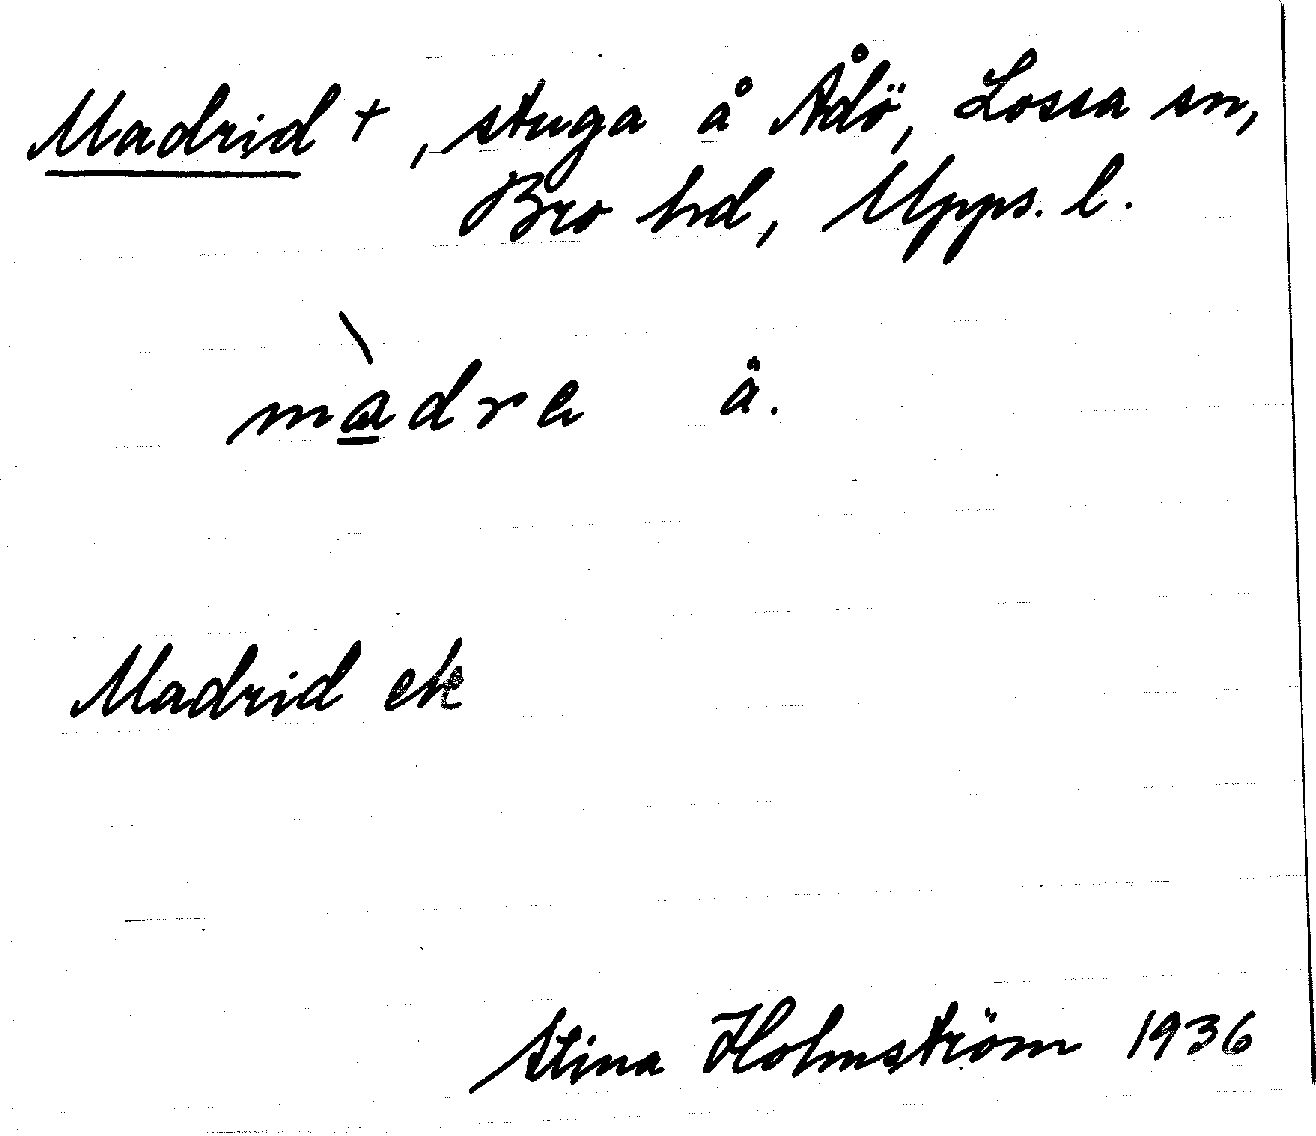 Madrid +, stuga å Ådö, Lossa sn,
Bro hd, Upps. l.
màdre å.
Madrid ek
Stina Holmström 1936